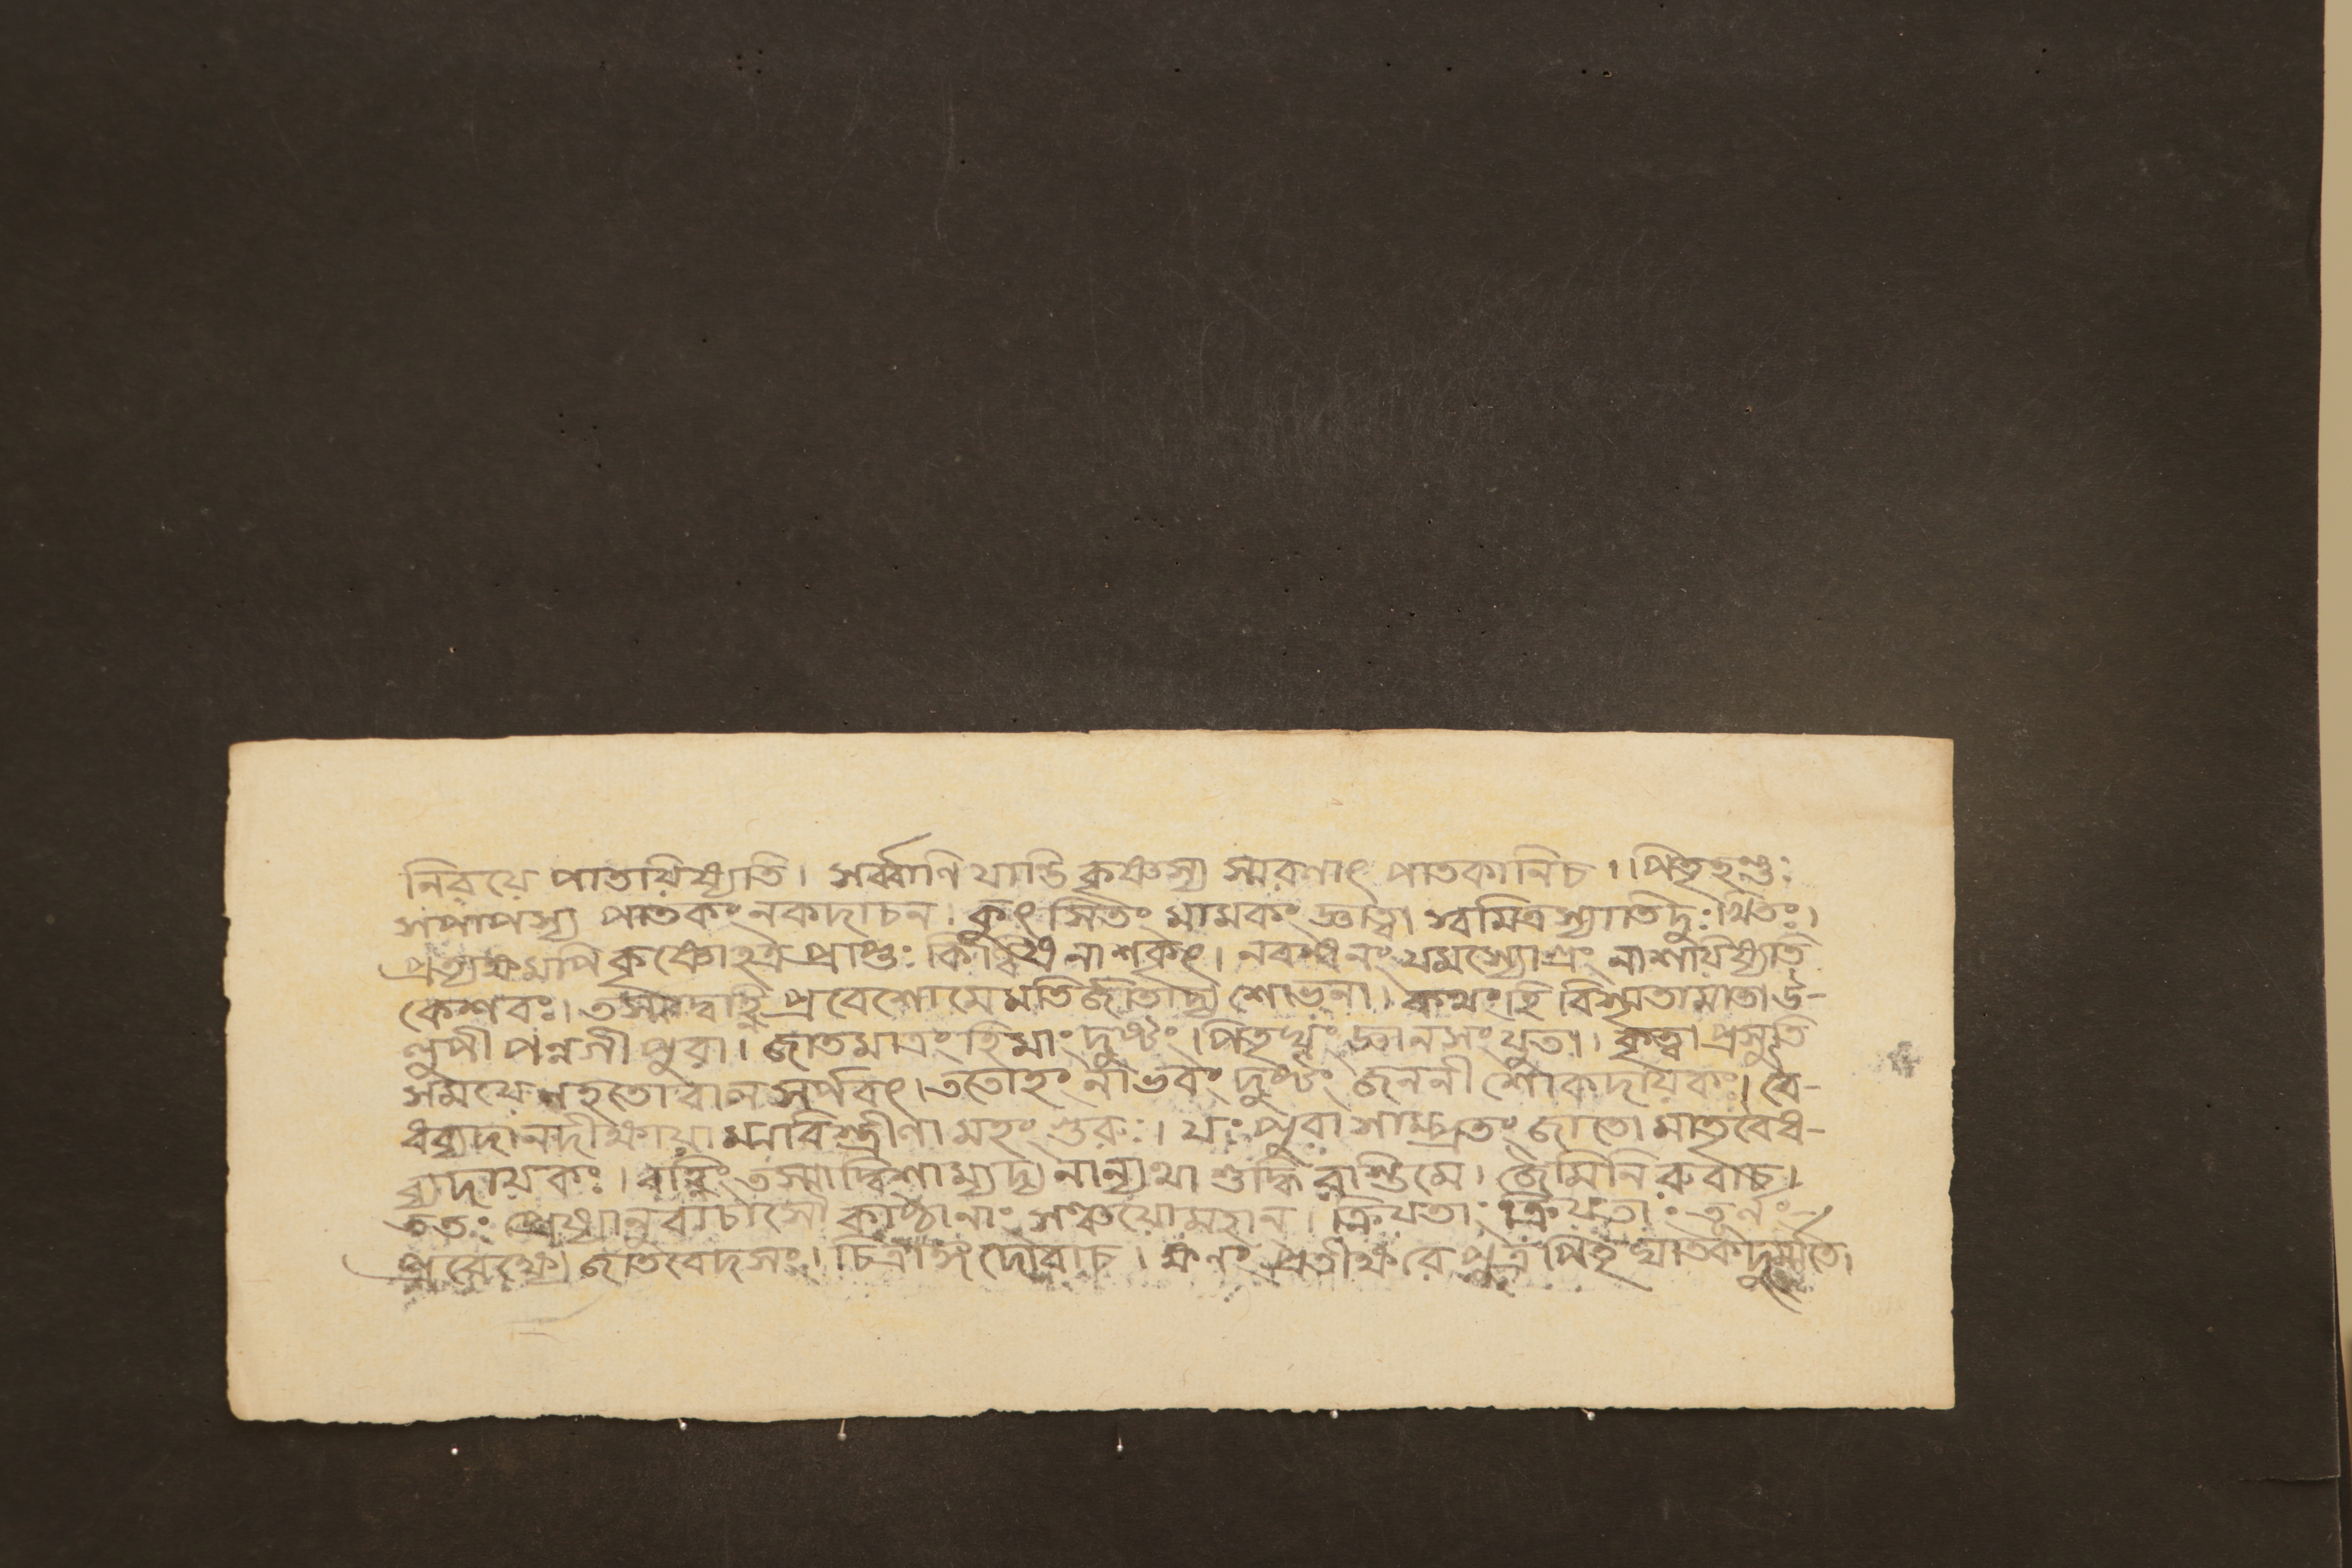 নিরয়ে পাতয়িষ্যতি। সর্ব্বাণি যান্তি কৃষ্ণস্য স্মরণাৎ পাতকানিচ।। পিতৃহন্তুঃ
সপাপস্য পাতকং নকদাচন। কুৎসিতং মামকং জ্ঞাত্বা স্বমিত্রস্যাতিদুঃখিতঃ।
প্রত্যক্ষমপি কৃষ্ণোহত্র প্রাপ্তঃ নাশকৃৎ। নবন্ধনং যমস্যোগ্রং নাশয়িষ্যতি
কেশবঃ। তস্মাদ্বহ্নি প্রবেশোমে মতির্জাতাদ্য শোভনা। কথংহি বিস্মৃতামাতা উ-
লুপী পন্নগী পুরা। জাতমাত্রংহিমাং দুষ্টং। পিতৃঘ্নং জ্ঞানসংযুতা। কৃত্বা প্রসূতি
সময়ে নহতো বাল সর্পবৎ। ততোহং নাভবং দুষ্টঃ জননী শোকদায়কঃ। বৈ-
ধব্যদানদীক্ষায়া মরিস্ত্রীণা মহং গুরুঃ। যঃ পুরা সাম্প্রতং জাতো মাতৃবৈধ-
ব্যদায়কঃ। বহ্নিং তস্মাদ্বিশাম্যদ্য নান্যথা শুদ্ধি রাস্তিমে। জৈমিনি রুবাচ।
ততঃ প্রেষ্যানুবাচাসৌ কাষ্ঠানাং সঞ্চয়োমহান। ক্রিয়তাং ক্রিয়তাং তূর্নং
প্রবেক্ষ্যে জাতবেদসং। চিত্রাঙ্গদোবাচ। ক্ষনং প্রতীক্ষ রে পুত্র পিতৃ ঘাতক দুর্ম্মতে।